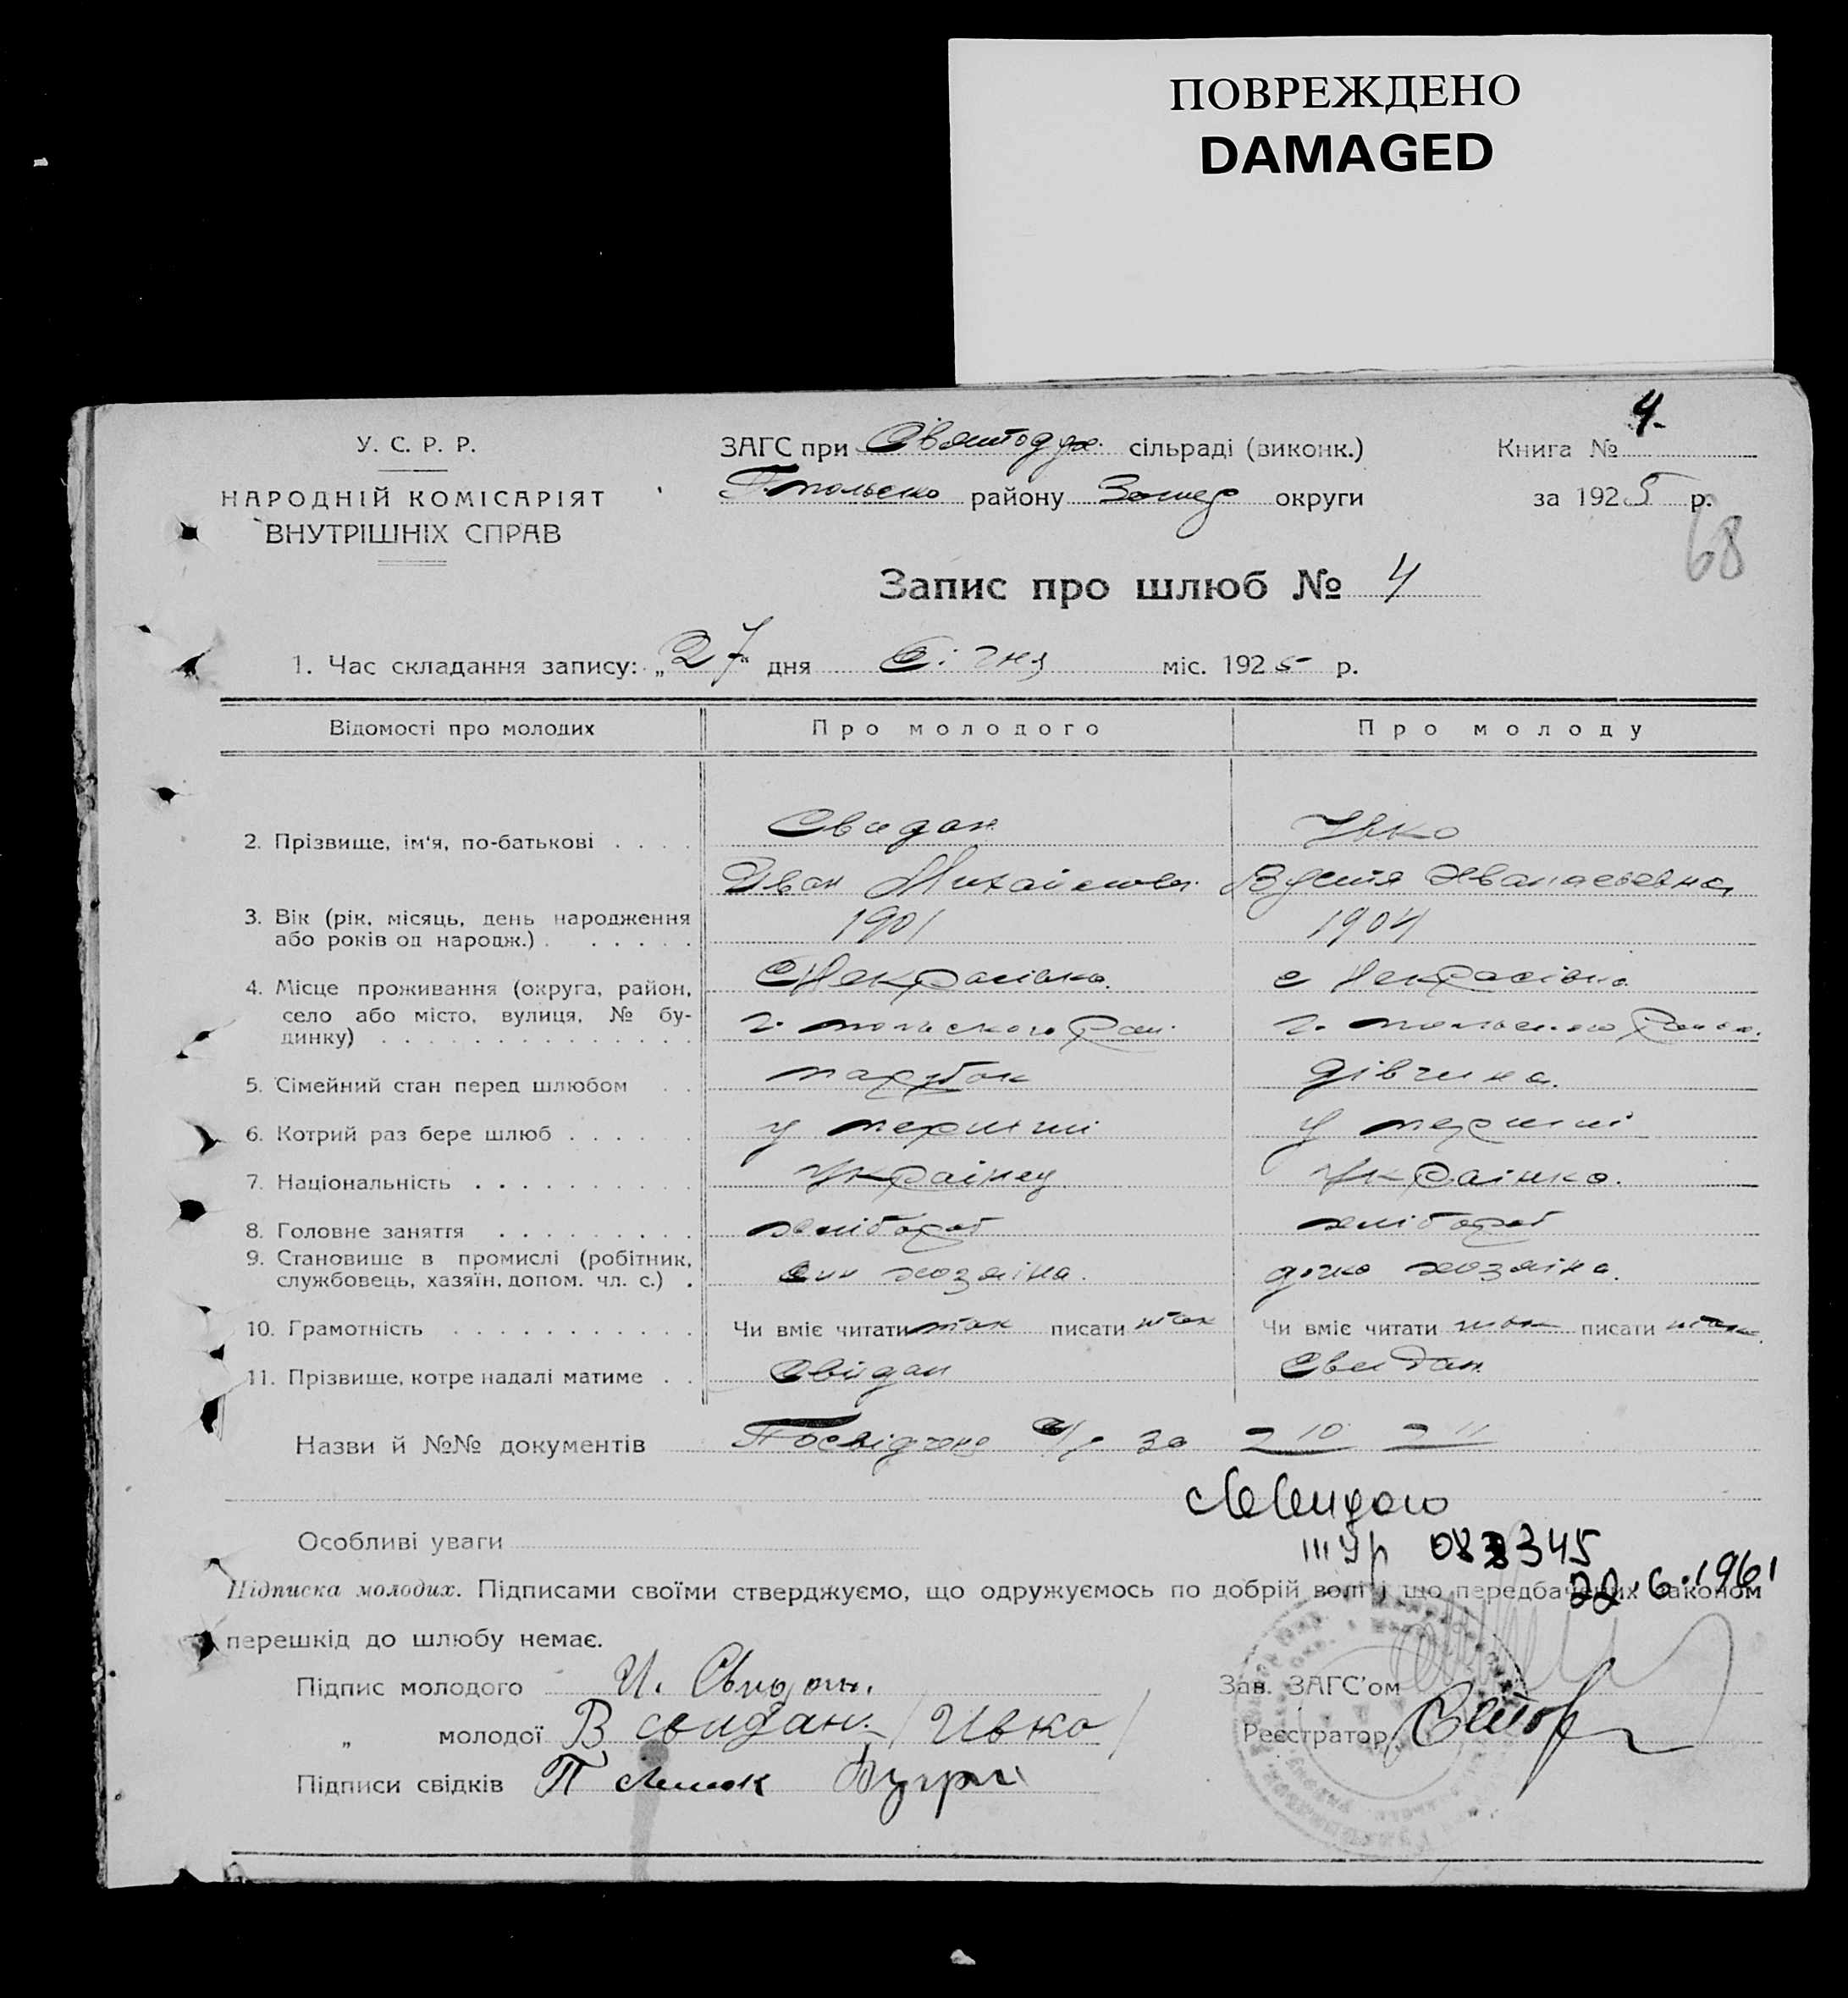 ПОВРЕЖДЕНО
DAMAGED
У. С. Р. Р.
НАРОДНІЙ КОМІСАРІЯТ
ВНУТРІШНІХ СПРАВ
ЗАГС при Святодух. сільраді (виконк.)
району округи
Книга № 4.
за 1925 р.
68
Запис про шлюб № 4
1. Час складання запису: „27" дня Січня міс. 1925 р.
Відомості про молодих Про молодого Про молоду
2. Прізвище, ім'я, по-батькові . . . . Свидан Івко
Іван Михайлов.
3. Вік (рік, місяць, день народження 1901 1904
або років од народж.) . . . . . .
4. Місце проживання (округа, район, с Некрасівка с Некрасівка
село або місто, вулиця, № бу-
динку) . . . . . . . . . . . . . .
5. Сімейний стан перед шлюбом . . парубок дівчина.
6. Котрий раз бере шлюб . . . . . . у перший у перший
7. Національність . . . . . . . . . . Українец Українка.
8. Головне заняття . . . . . . . . . хлібороб хлібороб
9. Становище в промислі (робітник, син хозяіна. дочка хозяіна.
службовець, хазяїн, допом. чл. с.) .
10. Грамотність . . . . . . . . . . . Чи вміє читати так писати так Чи вміє читати так писати так
11. Прізвище, котре надалі матиме . . Свидан Свидан
Назви й №№ документів за 10 11
ІІІ УР 345
28.6.1961
Особливі уваги
Підписка молодих. Підписами своїми стверджуємо, що одружуємось по добрій волі і що передбачених законом
перешкід до шлюбу немає.
Підпис молодого И. Свидан.
„ молодої В свидан. /Ивко/
Підписи свідків П
Зав. ЗАГС'ом
Реєстратор